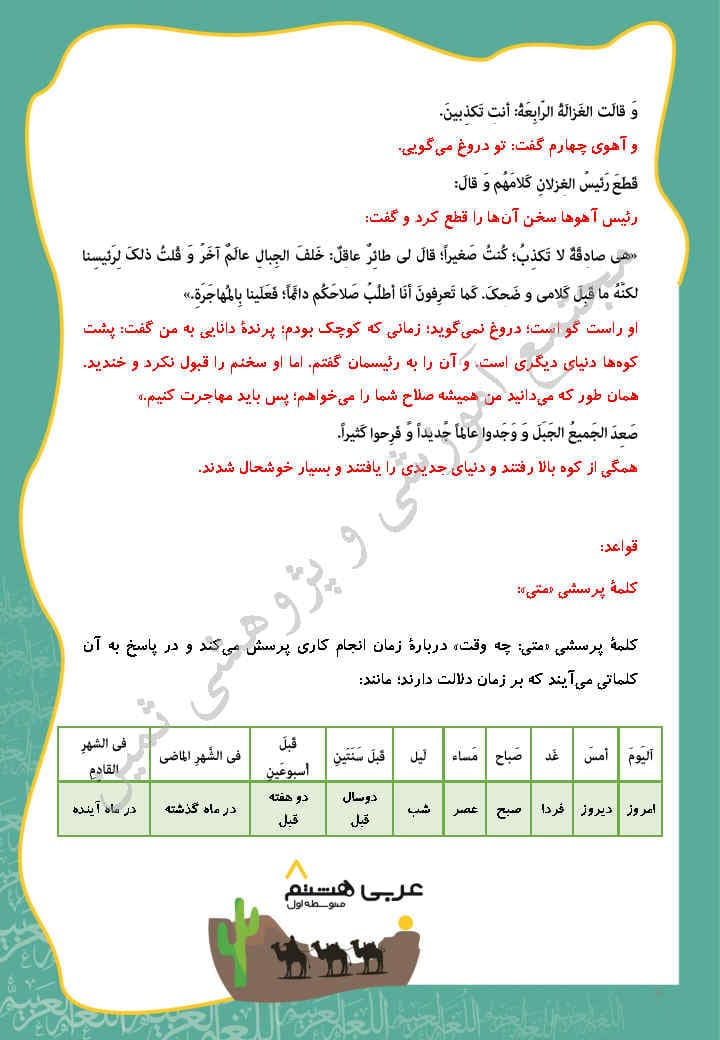 وَ قالَت الغَزالَةُ الرّابِعَةُ: أنتِ تَكذِبینَ.
و آهوی چهارم گفت: تو دروغ می‌گویی.
قَطَعَ رَئیسُ الغِزلانِ کَلامَهُم وَ قالَ:
رئیس آهوها سخن آن‌ها را قطع کرد و گفت:
«هی صادِقَةٌ لا تَکذِبُ؛ کُنتُ صَغیراً؛ قالَ لی طائِرٌ عاقِلٌ: خَلفَ الجِبالِ عالَمٌ آخَرُ وَ قُلتُ ذلکَ لِرَئیسِنا
لکنَّهُ ما قَبِلَ کَلامی و ضَحکَ. کَما تَعرِفونَ أنَا أطلُبُ صَلاحَکُم دائمًا؛ فَعَلَینا بِالمُهاجَرَةِ.»
او راست گو است؛ دروغ نمی‌گوید؛ زمانی که کوچک بودم؛ پرندهٔ دانایی به من گفت: پشت
کوه‌ها دنیای دیگری است. و آن را به رئیسمان گفتم. اما او سخنم را قبول نکرد و خندید.
همان طور که می‌دانید من همیشه صلاح شما را می‌خواهم؛ پس باید مهاجرت کنیم.»
صَعِدَ الجَمیعُ الجَبَلَ وَ وَجَدوا عالَماً جُدیداً وَ فَرِحوا کَثیراً.
همگی از کوه بالا رفتند و دنیای جدیدی را یافتند و بسیار خوشحال شدند.
قواعد:
کلمهٔ پرسشی «متی»:
کلمهٔ پرسشی «متی: چه وقت» دربارهٔ زمان انجام کاری پرسش می‌کند و در پاسخ به آن
کلماتی می‌آیند که بر زمان دلالت دارند؛ مانند:
اَلیَومَ أمسَ غَد صَباح مَساء لَیل قَبلَ سَنَتَینِ قَبلَ أسبوعَینِ فی الشَّهرِ الماضی فی الشهرِ القادِمِ
امروز دیروز فردا صبح عصر شب دوسال قبل دو هفته قبل در ماه گذشته در ماه آینده
عربی هشتم
متوسطه اول
مجتمع آموزشی و پژوهشی ثمین